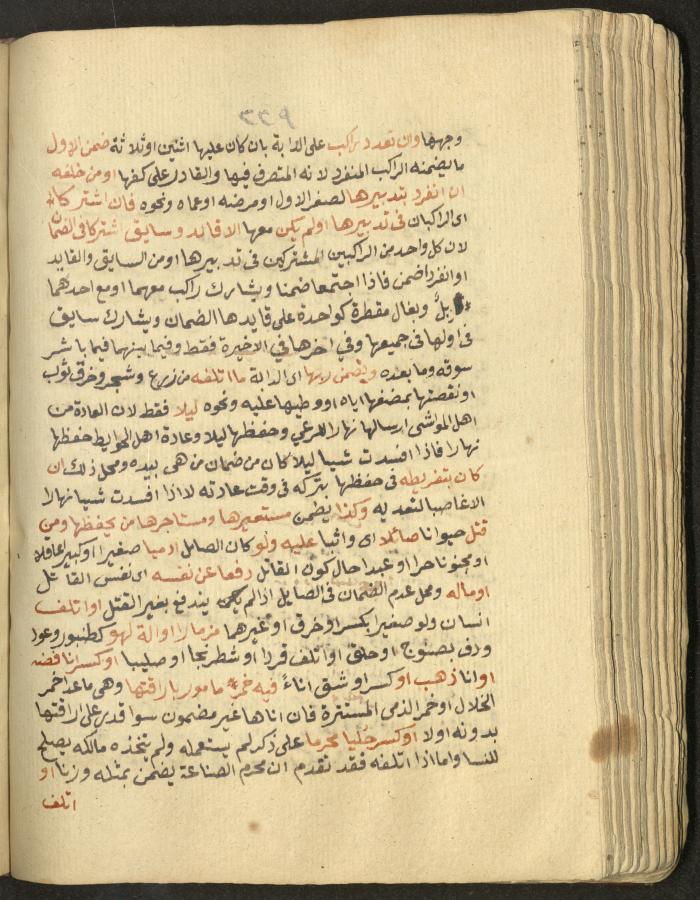 وجهها وان تعدد راكب على الدابة بان كان عليها اثنين او ثلاثة ضمن الاول
ما يضمنه الراكب المنفرد لانه المتصرف فيها والقادر على كفها او من خلفه
ان انفرد بتدبيرها لصغر الاول او مرضه او عماه ونحوه فان اشتركا
اى الراكبان فى تدبيرها او لم يكن معها الا قايد وسايق اشتركا فى الضمان
لان كل واحد من الراكبين المشتركين فى تدبيرها او من السايق والقايد
او انفرد ضمن فاذا اجتمعا ضمنا ويشارك راكب معهما او مع احدهما
وابل وبغال مقطرة كواحدة على قايدها الضمان ويشارك سايق
فى اولها فى جميعها وفى اخرها فى الاخيرة فقط وفيما بينهما فيما باشر
سوقه وما بعده ويضمن ربها اى الدابة ما اتلفه من زرع وشجر وخرق ثوب
او نقصتها بمضغها اياه او وطيها عليه ونحوه ليلا فقط لان العادة من
اهل المواشى ارسالها نهارا للرعي وحفظها ليلا وعادة اهل الحوايط حفظها
نهارا فاذا افسدت شيا ليلا كان من ضمان من هى بيده ومحل ذلك ان
كان بتفريطه فى حفظها بتركه فى وقت عادته لا اذا افسدت شيا نهارا
الا غاصبا لتعديه وكذا يضمن مستعيرها ومستاجرها من يحفظها ومن
قتل حيوانا صائلا اى واثبا عليه ولو كان الصايل ادميا صغيرا او كبيرا عاقلا
او مجنونا حرا او عبدا حال كون القاتل دفعا عن نفسه اى نفس القاتل
او ماله ومحل عدم الضمان فى الصايل اذا لم يكن يندفع بغير القتل او اتلف
انسان ولو صغيرا بكسر او خرق او غيرهما مزمارا او الة لهو كطنبور وعود
ودف بصنوج او حلق او اتلف قردا او شطرنجا او صليبا او كسر انا فضة
او انا ذهب او كسر او شق اناءً فيه خمر مامور باراقتها وهى ما عدا خمر
الخلال او خمر الذمى المستترة فان اناها غير مضمون سوا قدر على اراقتها
بدونه او لا او كسر حليا محرما على ذكر لم يستعمله ولم يتخذه مالكه يصلح
للنسا واما اذا اتلفه فقد تقدم ان محرم الصناعة يضمن بمثله وزنا او
اتلف